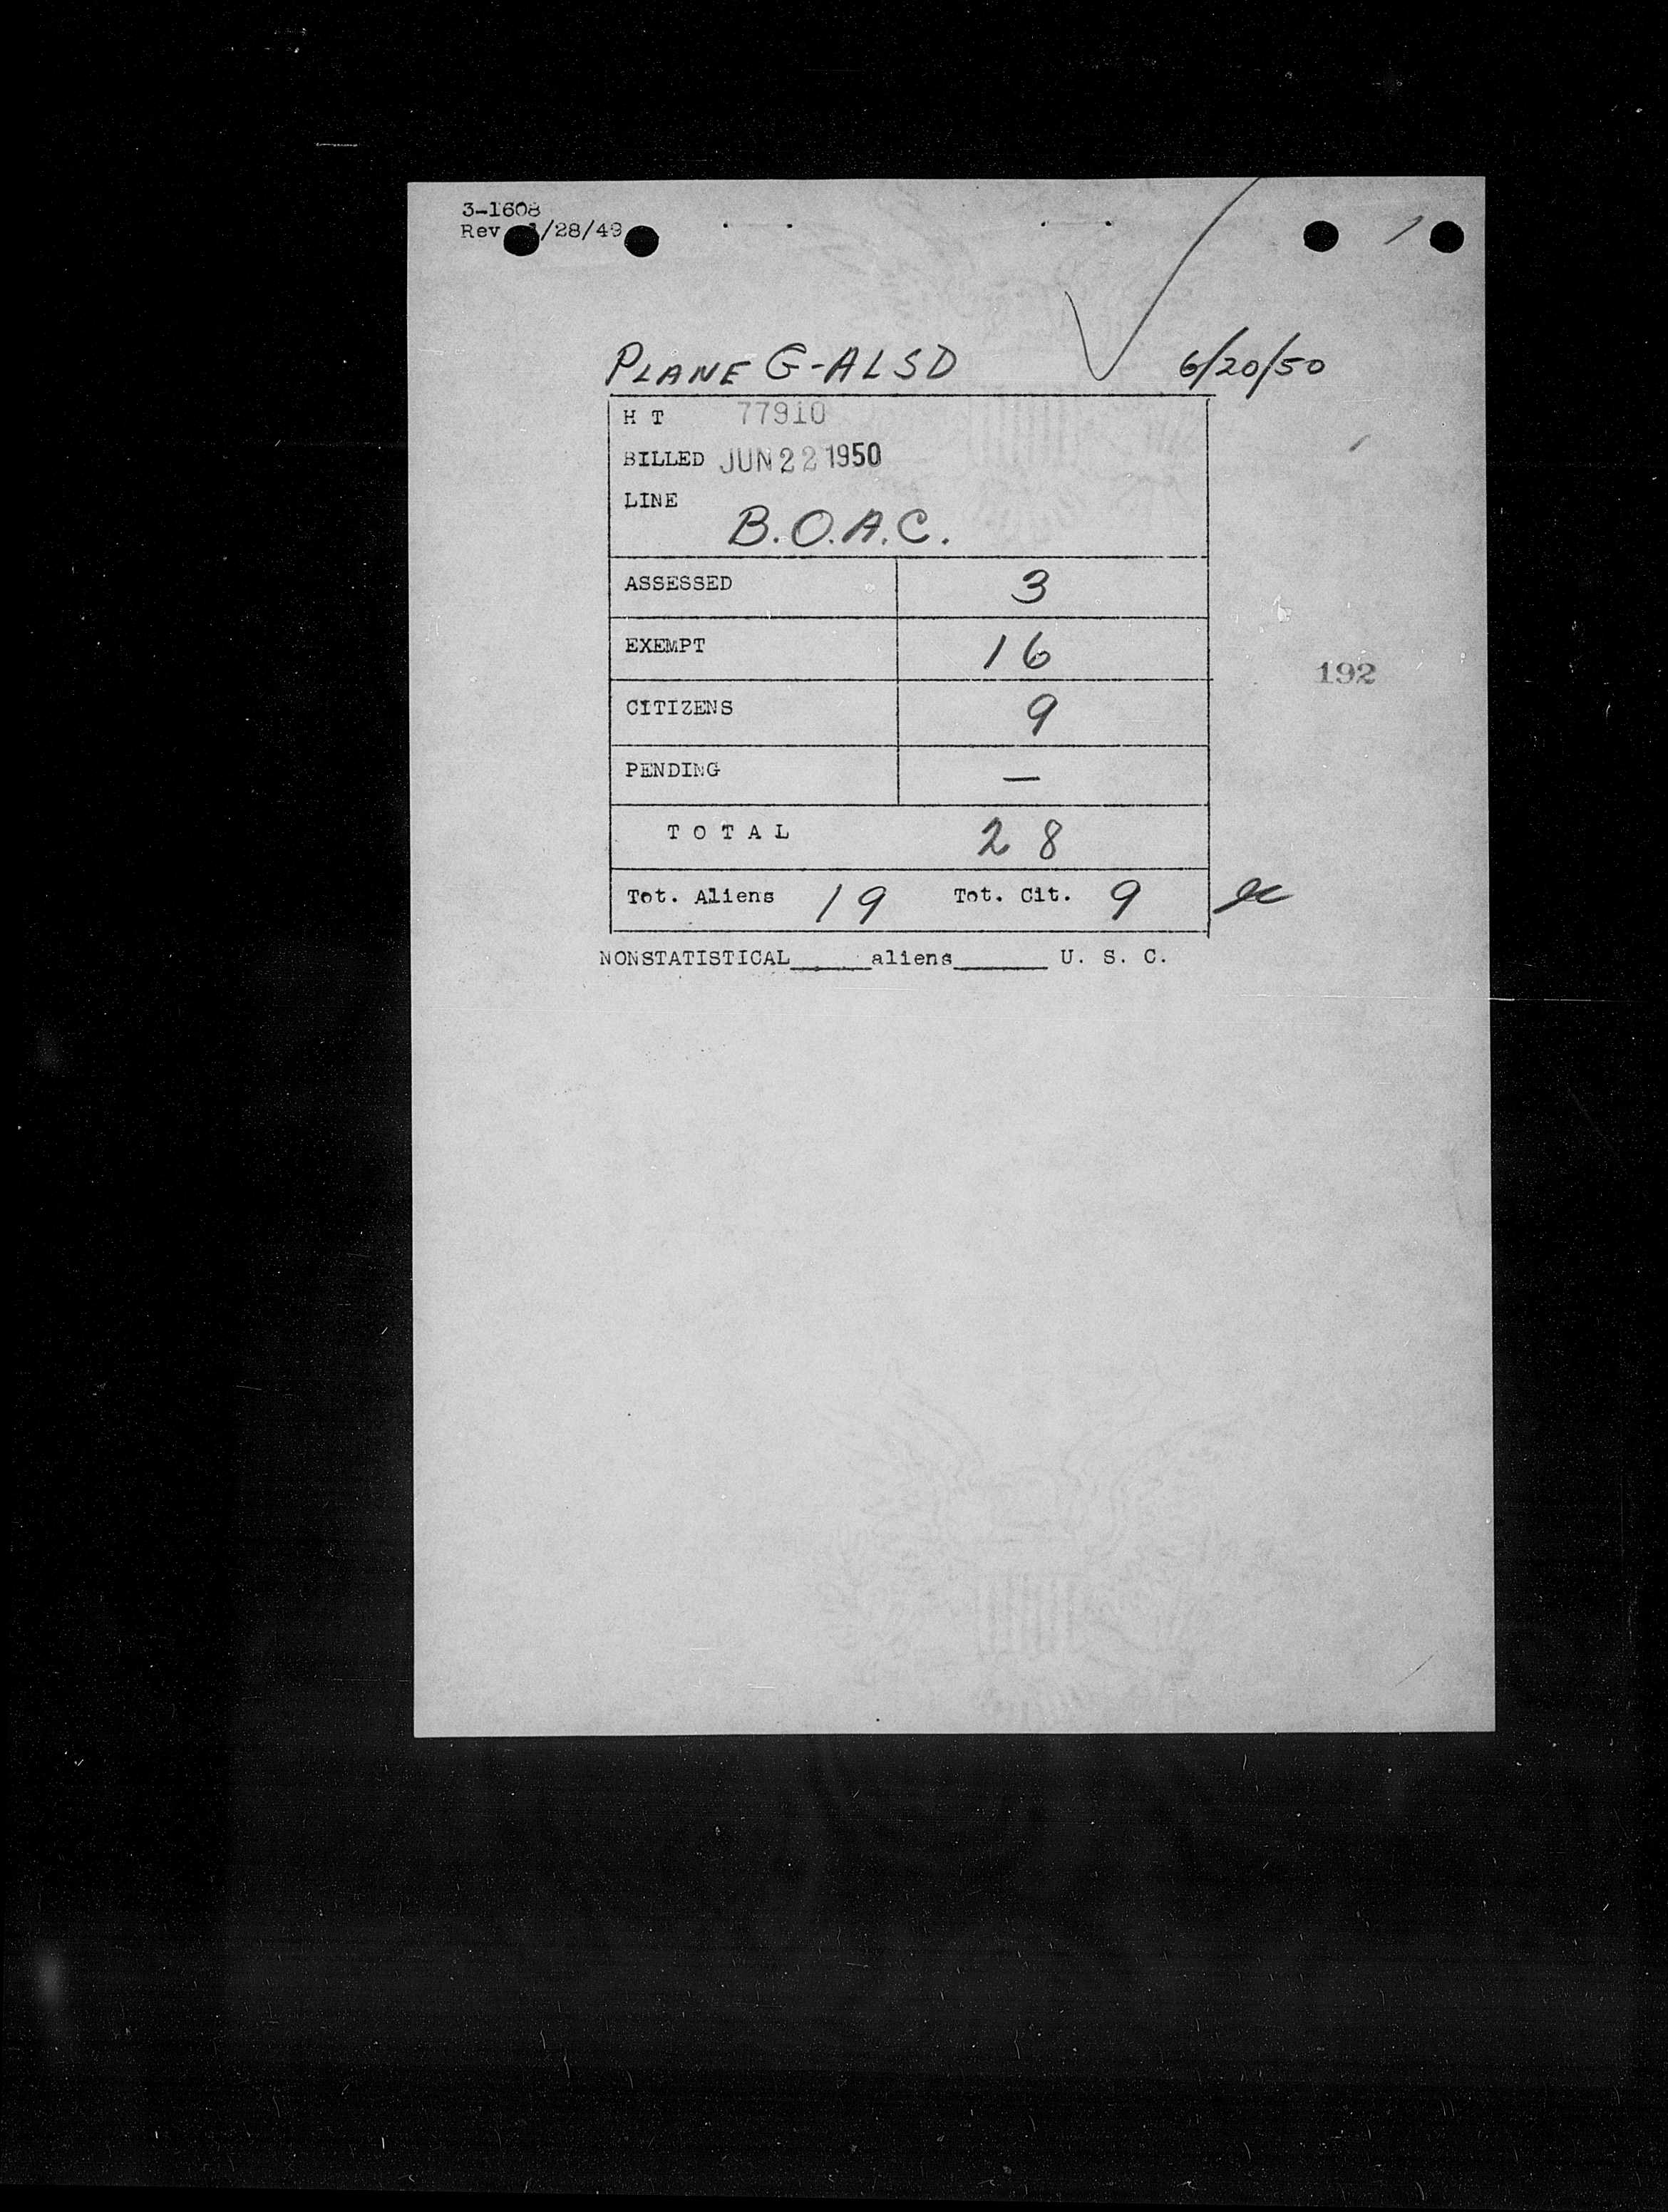 3-1608
Rev 1/28/49
PLANE G-ALSD 6/20/50
H T 77910
BILLED JUN 22 1950
LINE
B.O.A.C.
ASSESSED 3
EXEMPT 16
192
CITIZENS 9
PENDING —
TOTAL 28
Tot. Aliens 19 Tot. Cit. 9
NONSTATISTICAL_____aliens______ U. S. C.